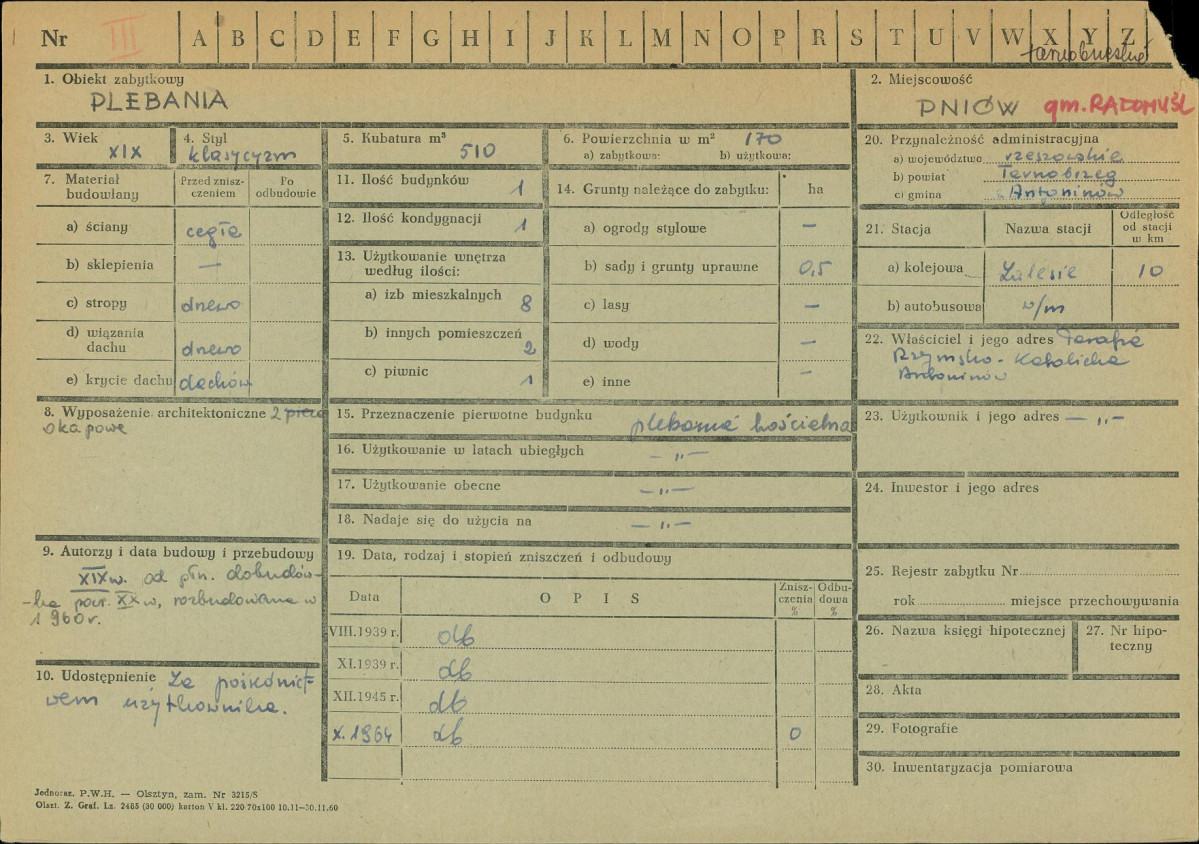 Nr III A B C D E F G H I J K L M N O P R S T U V W X Y Z
tarnobrzeskie
1. Obiekt zabytkowy
PLEBANIA
2. Miejscowość
PNIÓW gm. RADOMYŚL
3. Wiek
XIX
4. Styl
klasycyzm
5. Kubatura m³
510
6. Powierzchnia w m² 170
a) zabytkowa: b) użytkowa:
7. Materiał budowlany
Przed zniszczeniem
Po odbudowie
a) ściany cegła
b) sklepienia —
c) stropy drewo
d) wiązania dachu drewo
e) krycie dachu dachów
8. Wyposażenie architektoniczne 2 piece
okapowe
9. Autorzy i data budowy i przebudowy
XIX w. od płn. dobudów-
-ka pocz. XX w, rozbudowana w
1960 r.
10. Udostępnienie Za pośrednict-
wem użytkownika.
11. Ilość budynków 1
12. Ilość kondygnacji 1
13. Użytkowanie wnętrza
według ilości:
a) izb mieszkalnych 8
b) innych pomieszczeń 2
c) piwnic 1
14. Grunty należące do zabytku: ha
a) ogrody stylowe —
b) sady i grunty uprawne 0,5
c) lasy —
d) wody —
e) inne —
15. Przeznaczenie pierwotne budynku plebania kościelna
16. Użytkowanie w latach ubiegłych — „ —
17. Użytkowanie obecne — „ —
18. Nadaje się do użycia na — „ —
19. Data, rodzaj i stopień zniszczeń i odbudowy
Data
OPIS
Zniszczenia %
Odbudowa %
VIII.1939 r. db
XI.1939 r. db
XII.1945 r. db
X.1964 db 0
20. Przynależność administracyjna
a) województwo rzeszowskie
b) powiat Tarnobrzeg
c) gmina Antoniów
21. Stacja
Nazwa stacji
Odległość od stacji w km
a) kolejowa Zalesie 10
b) autobusowa w/m
22. Właściciel i jego adres Parafia
Rzymsko-Katolicka
Antoniów
23. Użytkownik i jego adres — „ —
24. Inwestor i jego adres
25. Rejestr zabytku Nr
rok miejsce przechowywania
26. Nazwa księgi hipotecznej
27. Nr hipoteczny
28. Akta
29. Fotografie
30. Inwentaryzacja pomiarowa
Jednoraz. P.W.H. — Olsztyn, zam. Nr 3215/S
Olszt. Z. Graf. Lz. 2485 (30 000) karton V kl. 220 70x100 10.11—30.11.60